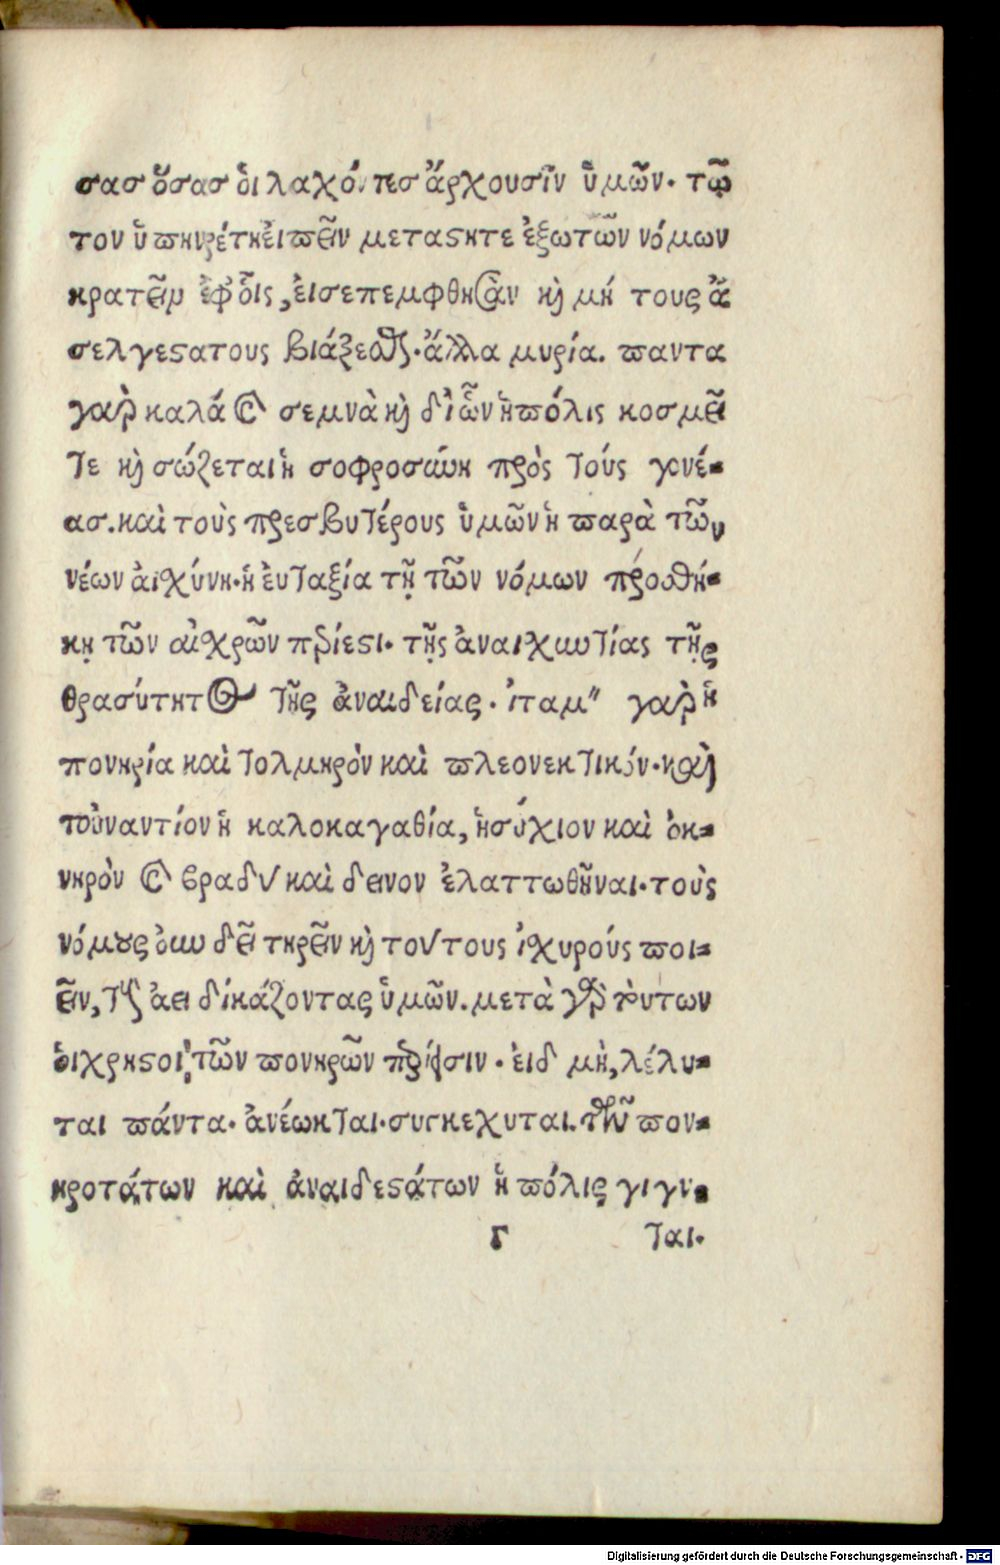 σασ ὅσασ ὁι λαχόντεσ ἄρχουσῖν ὑμῶν· τῶ
τον ὑπηρέτηἐιπεῖν μεταϛητε ἐξωτῶν νόμων
κρατεῖν ἐφ᾽οἷς, ἐισεπεμφθησὰν καὶ μή τους ἄ
σελγεϛατους βιάξεσθαι·ἄλλα μυρία. παντα
γαρ̀ καλά καὶ σεμνὰ καὶ δι᾽ὧν ἡπόλις κοσμεῖ
τε καὶ σώζεται ἡ σοφροσωύη πρὸς τούς γονέ-
ασ. καὶ τοὺς πρεσβυτέρους ὑμῶν ἡ παρὰ τῶν
νέων ἀιχύνη·ἡ ἐυταξία τῇ τῶν νόμων προσθή-
κῃ τῶν αἰχρῶν πρίεϛι· τῆς ἀναιχωτίας τῆς
θρασύτητος τῆς ἀναιδείας· ἰταμ" γαρ̀ ἡ
πονηρία καὶ τολμηρὸν καὶ πλεονεκτικόν·καὶ
τοὐναντίον ἡ καλοκαγαθία, ἡσύχιον καὶ ὀκ-
νηρὸν καὶ βραδὺ καὶ δεινον ἐλαττωθῆναι·τοὺς
νόμους ὀιω δεῖ τηρεῖν καὶ τούτους ἰχυρούς ποι-
εῖν, τοὺς ἀει δικάζοντας ὑμῶν. μετὰ γὰρ τούτων
ὁιχρηϛοὶ, τῶν πονηρῶν περίεισιν · ἐιδ μὴ, λέλυ-
ται πάντα· ἀνέωκται·συγκεχυται. τῶν πον-
ηροτάτων καὶ ἀναιδεϛάτων ἡ πόλις γιγν-
Γ ται·
Digitalisierung gefördert durch die Deutsche Forschungsgemeinschaft - DFG